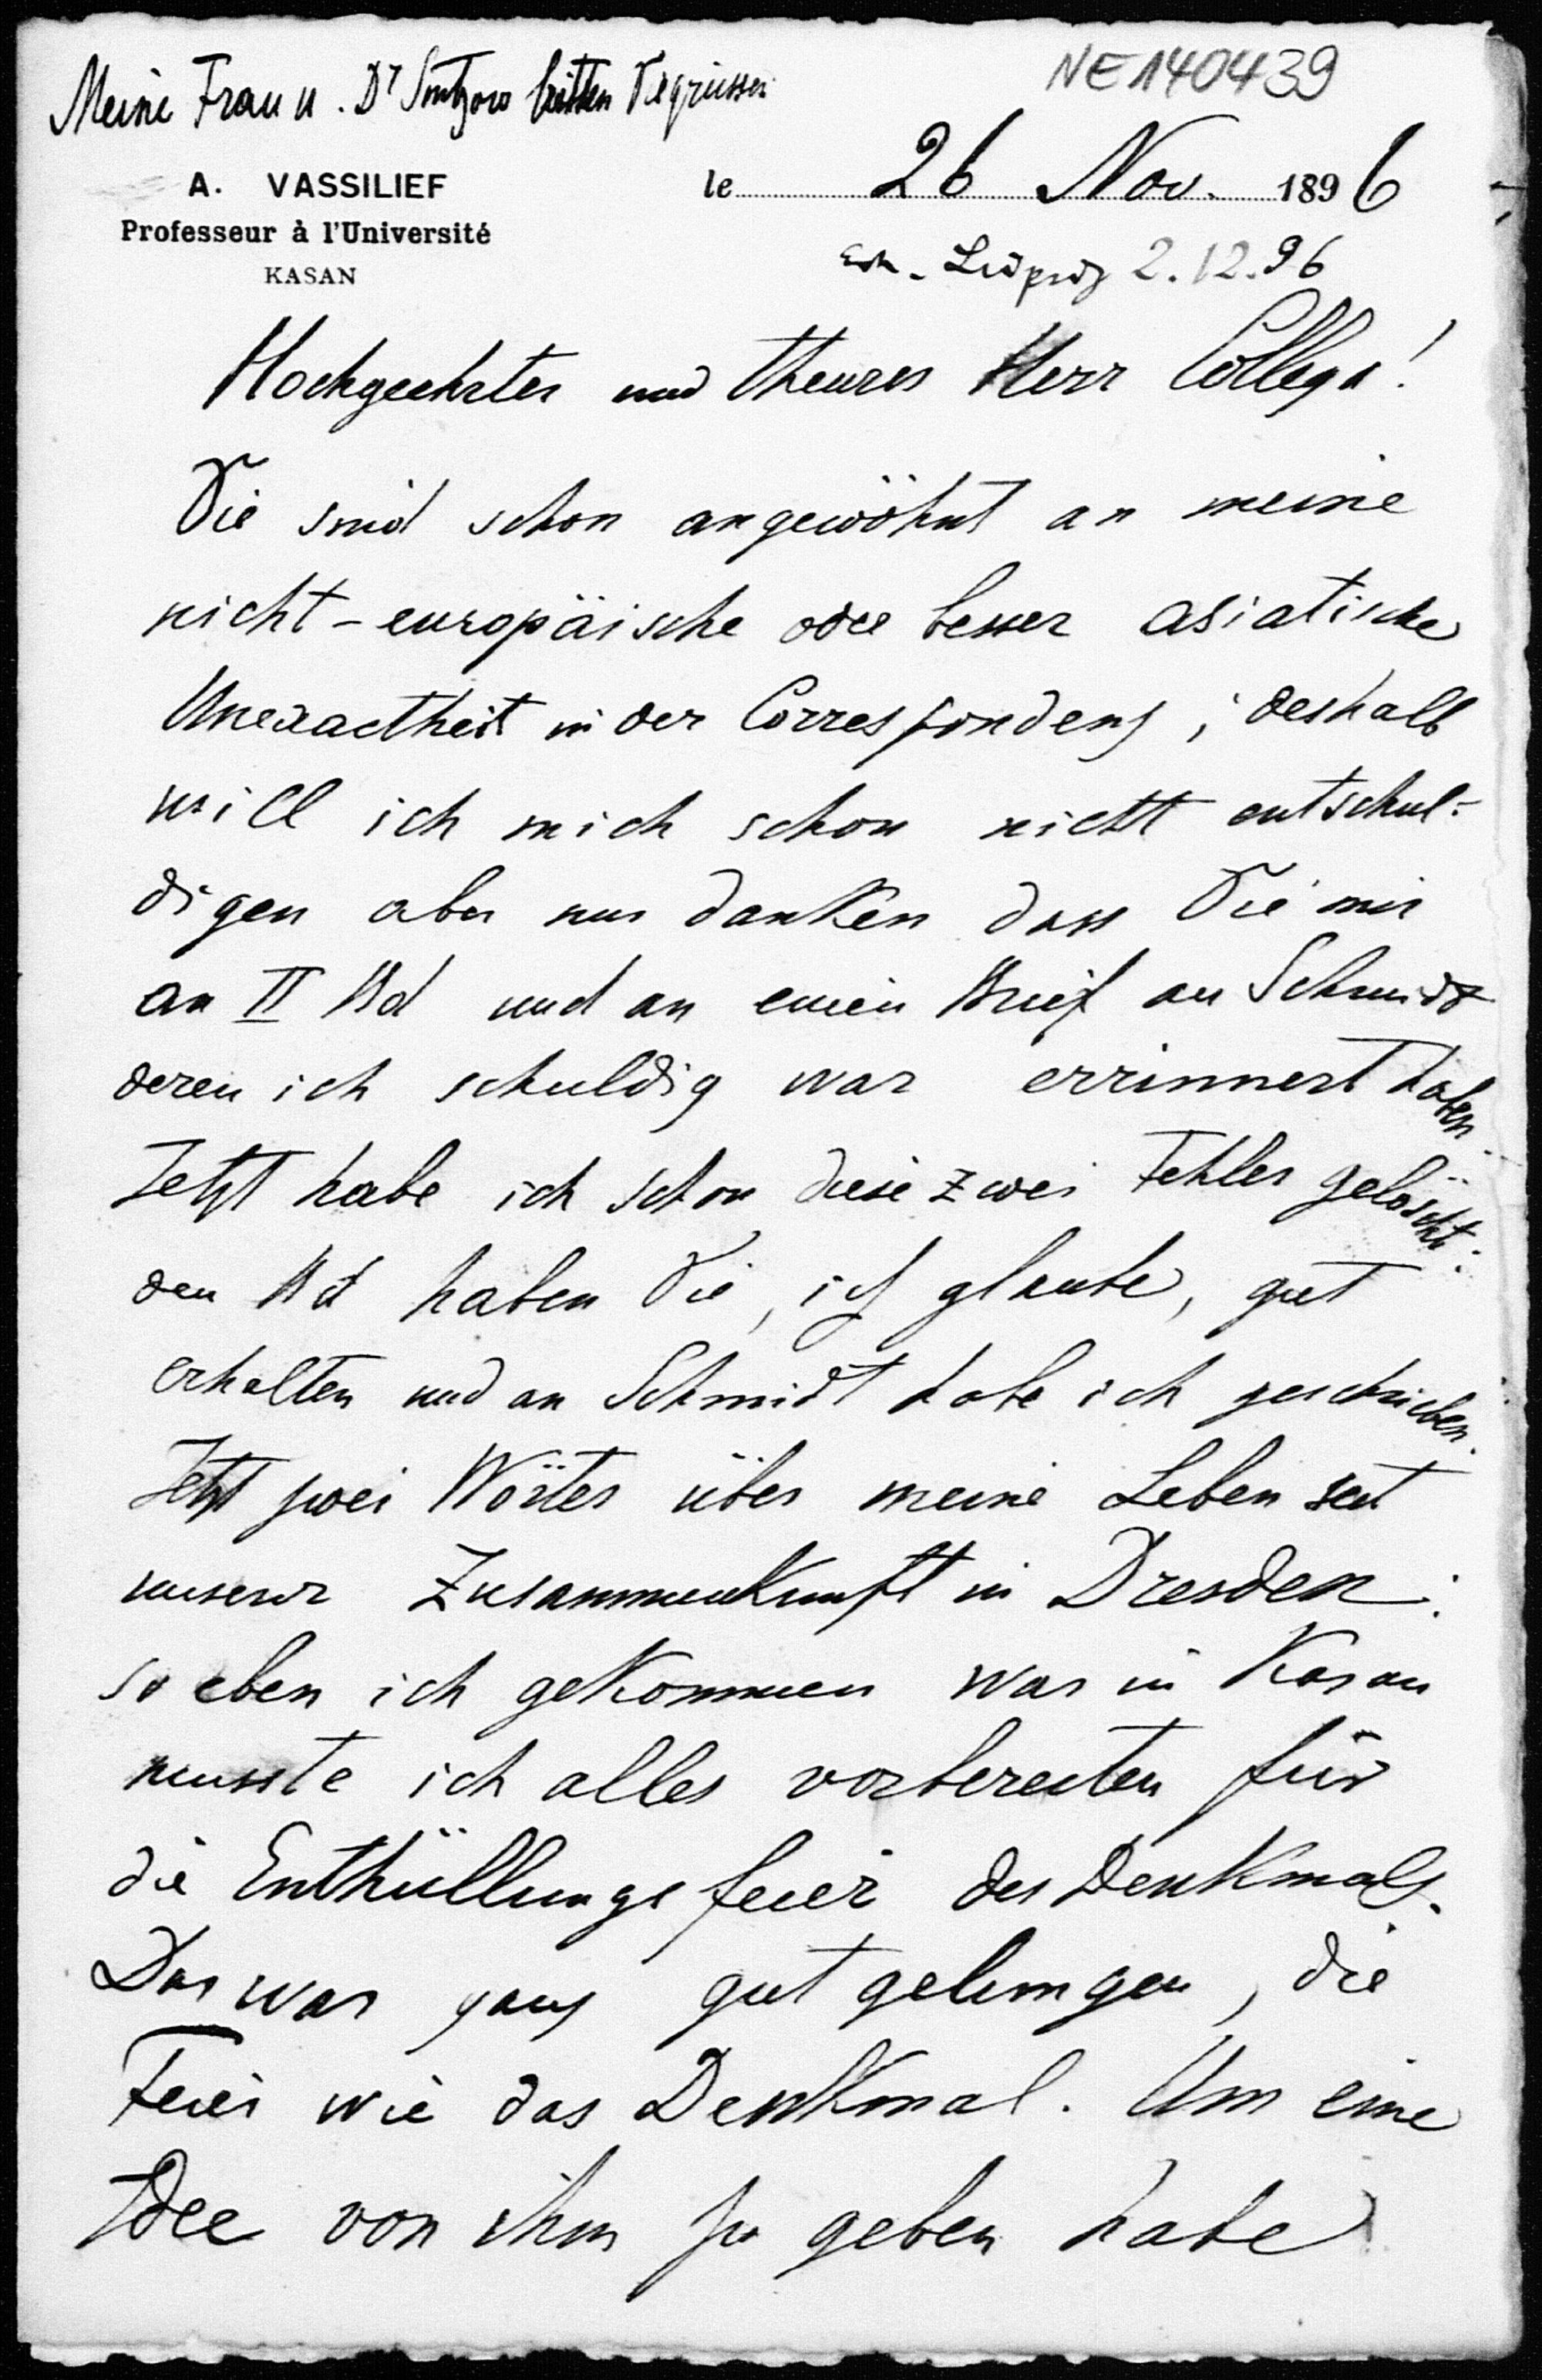 Meine Frau u. Dr bitten Sie grüssen
NE140439
A. VASSILIEF
Professeur à l'Université
KASAN
le 26 Nov. 1896
Leipzig 2.12.96
Hochgeehrter und theurer Herr Collega!
Sie sind schon angewöhnt an meine
nicht-europäische oder besser asiatische
Unexactheit in der Correspondenz; deshalb
will ich mich schon nicht entschul-
digen aber nur danken dass Sie mir
an II Bd und an einen Brief an Schmidt
deren ich schuldig war errinnert haben.
Jetzt habe ich schon diese zwei Fehler gelöscht:
den Bd haben Sie, ich glaube, gut
erhalten und an Schmidt habe ich geschrieben.
Jetzt zwei Wörter über meine Leben seit
unserer Zusammenkunft in Dresden:
so eben ich gekommen war in Kasan
musste ich alles vorbereiten für
die Enthüllungsfeier des Denkmals.
Das war ganz gut gelungen, die
Feier wie das Denkmal. Um eine
Idee von ihm zu geben habe